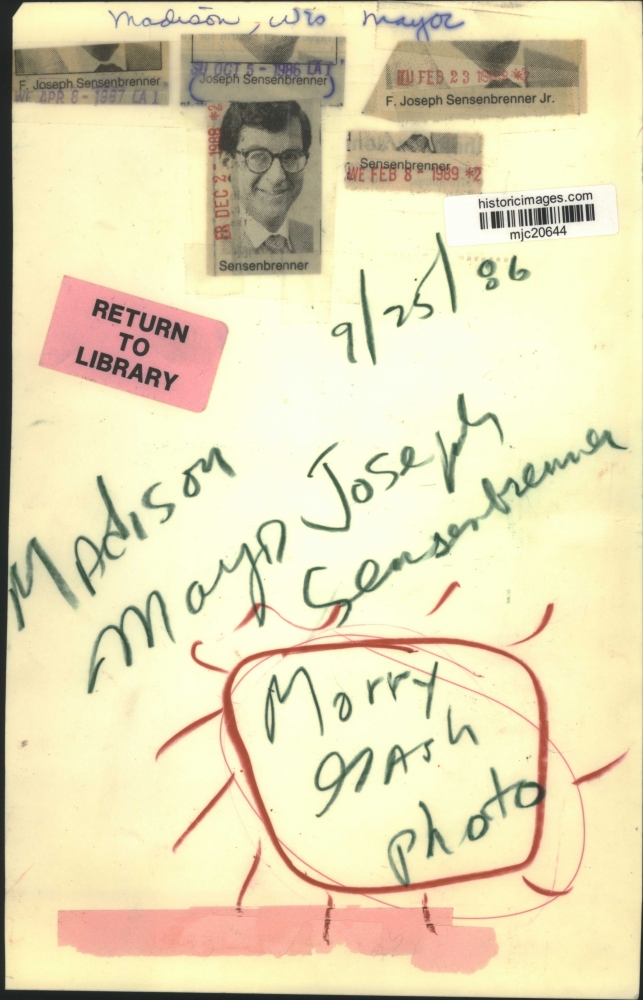 Madison, Wis Mayor
F. Joseph Sensenbrenner
WE APR 8 - 1987 (A)
SU OCT 5 - 1986 (A)
Joseph Sensenbrenner
TU FEB 23 *2
F. Joseph Sensenbrenner Jr.
FR DEC 2 - 1988 *2
Sensenbrenner
Sensenbrenner
WE FEB 8 - 1989 *2
historicimages.com
mjc20644
9/25/86
RETURN
TO
LIBRARY
Madison
Mayor Joseph
Sensenbrenner
Morry
Gash
photo